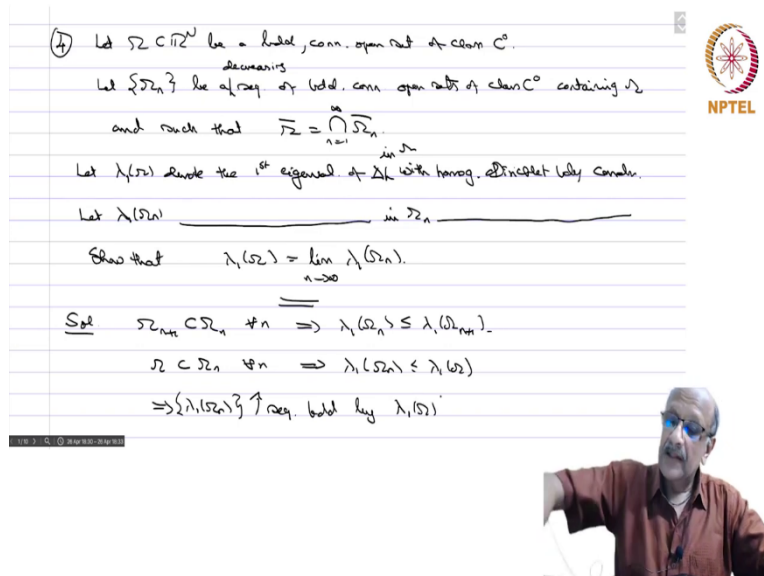 ④ Let Ω ⊂ ℝᴺ be a bdd, conn. open set of class C⁰.
decreasing
Let {Ωₙ} be a seq. of bdd. conn open sets of class C⁰ containing Ω
and such that Ω̅ = ⋂ₙ₌₁^∞ Ω̅ₙ.
in Ω
Let λ₁(Ω) denote the 1st eigenval. of Δ with homog. Dirichlet bdy condn.
Let λ₁(Ωₙ) ———— in Ωₙ ————
Show that λ₁(Ω) = lim n→∞ λ₁(Ωₙ).
Sol Ωₙ₊₁ ⊂ Ωₙ ∀n ⇒ λ₁(Ωₙ) ≤ λ₁(Ωₙ₊₁).
Ω ⊂ Ωₙ ∀n ⇒ λ₁(Ωₙ) ≤ λ₁(Ω)
⇒ {λ₁(Ωₙ)} ↑ seq. bdd by λ₁(Ω)
NPTEL